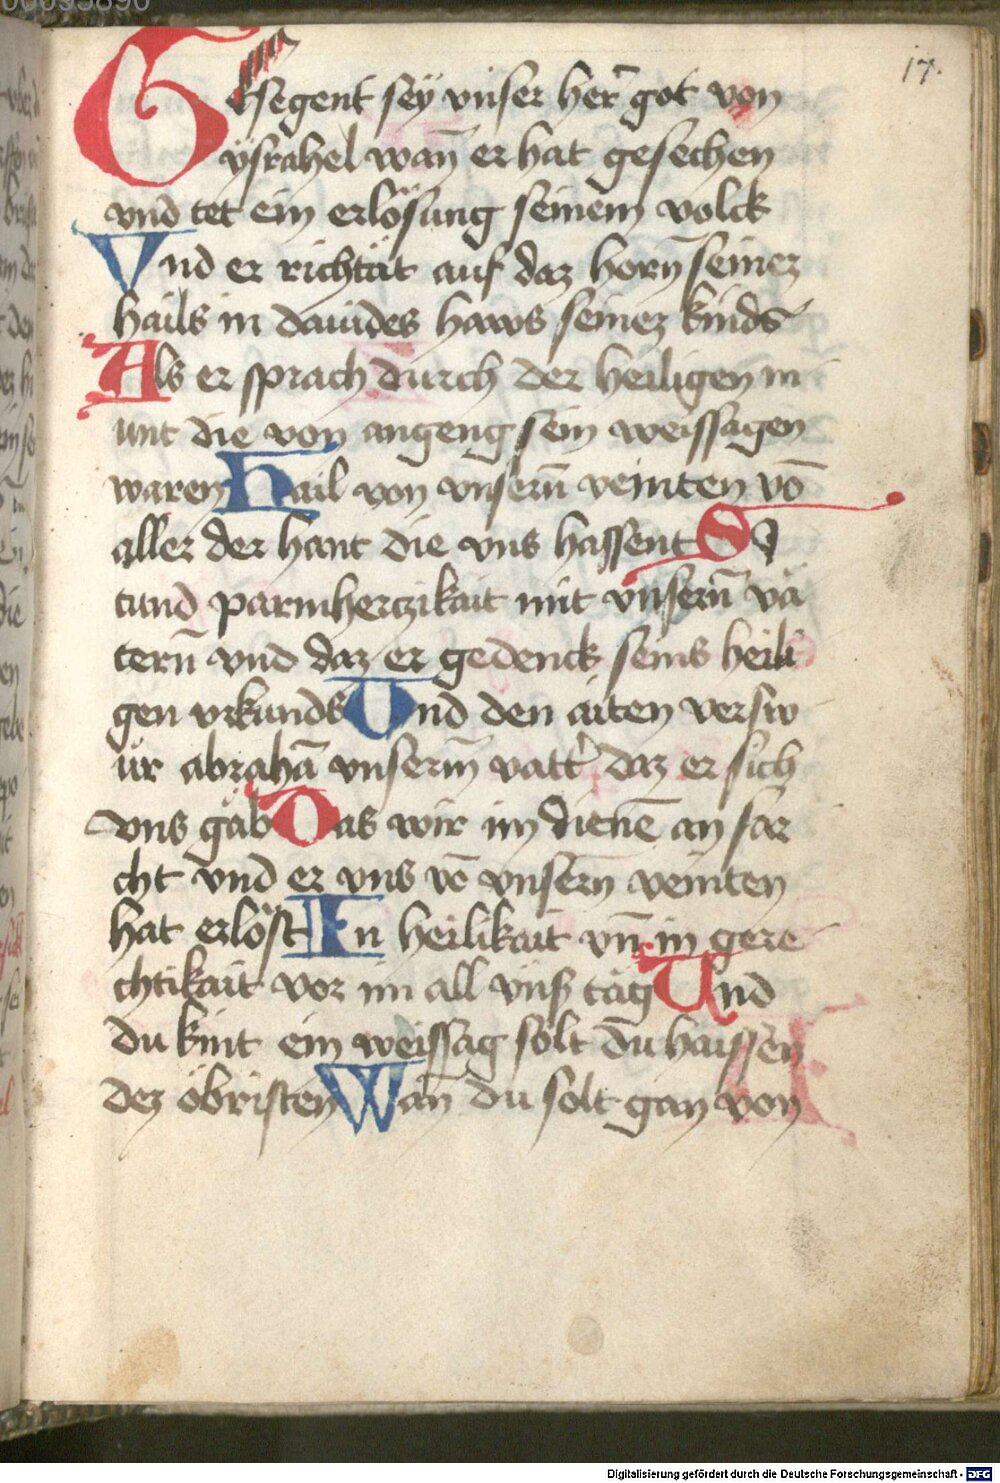 17.
Gesegent seÿ vnser her̄ got von
ysrahel wan̄ er hat gesechen
vnd tet ein erlösung seinem volck
Vnd er richtät auf daz horn̄ seinez
hails in dauides haws seinez kinds
Als er sprach durch der heiligen m
unt die von angeng sein weissagen
waren Hail von vnsern̄ veinten vō
aller der hant die vns hassent Zu
tund parmherczikait mit vnsern̄ vä
tern̄ vnd daz er gedenck seins heili
gen vrkunds Und den aiten versw
ür abrahā vnserm̄ vatt̾ daz er sich
vns gäb Das wir im dienē an for
cht vnd er vns vō vnsern̄ veinten
hat erlöst In heilikait vn̄ in gere
chtikait vor im all vnß täg Und
du kint ein weissag solt du haissen
dez öbristen Wan̄ du solt gan von
Digitalisierung gefördert durch die Deutsche Forschungsgemeinschaft - DFG